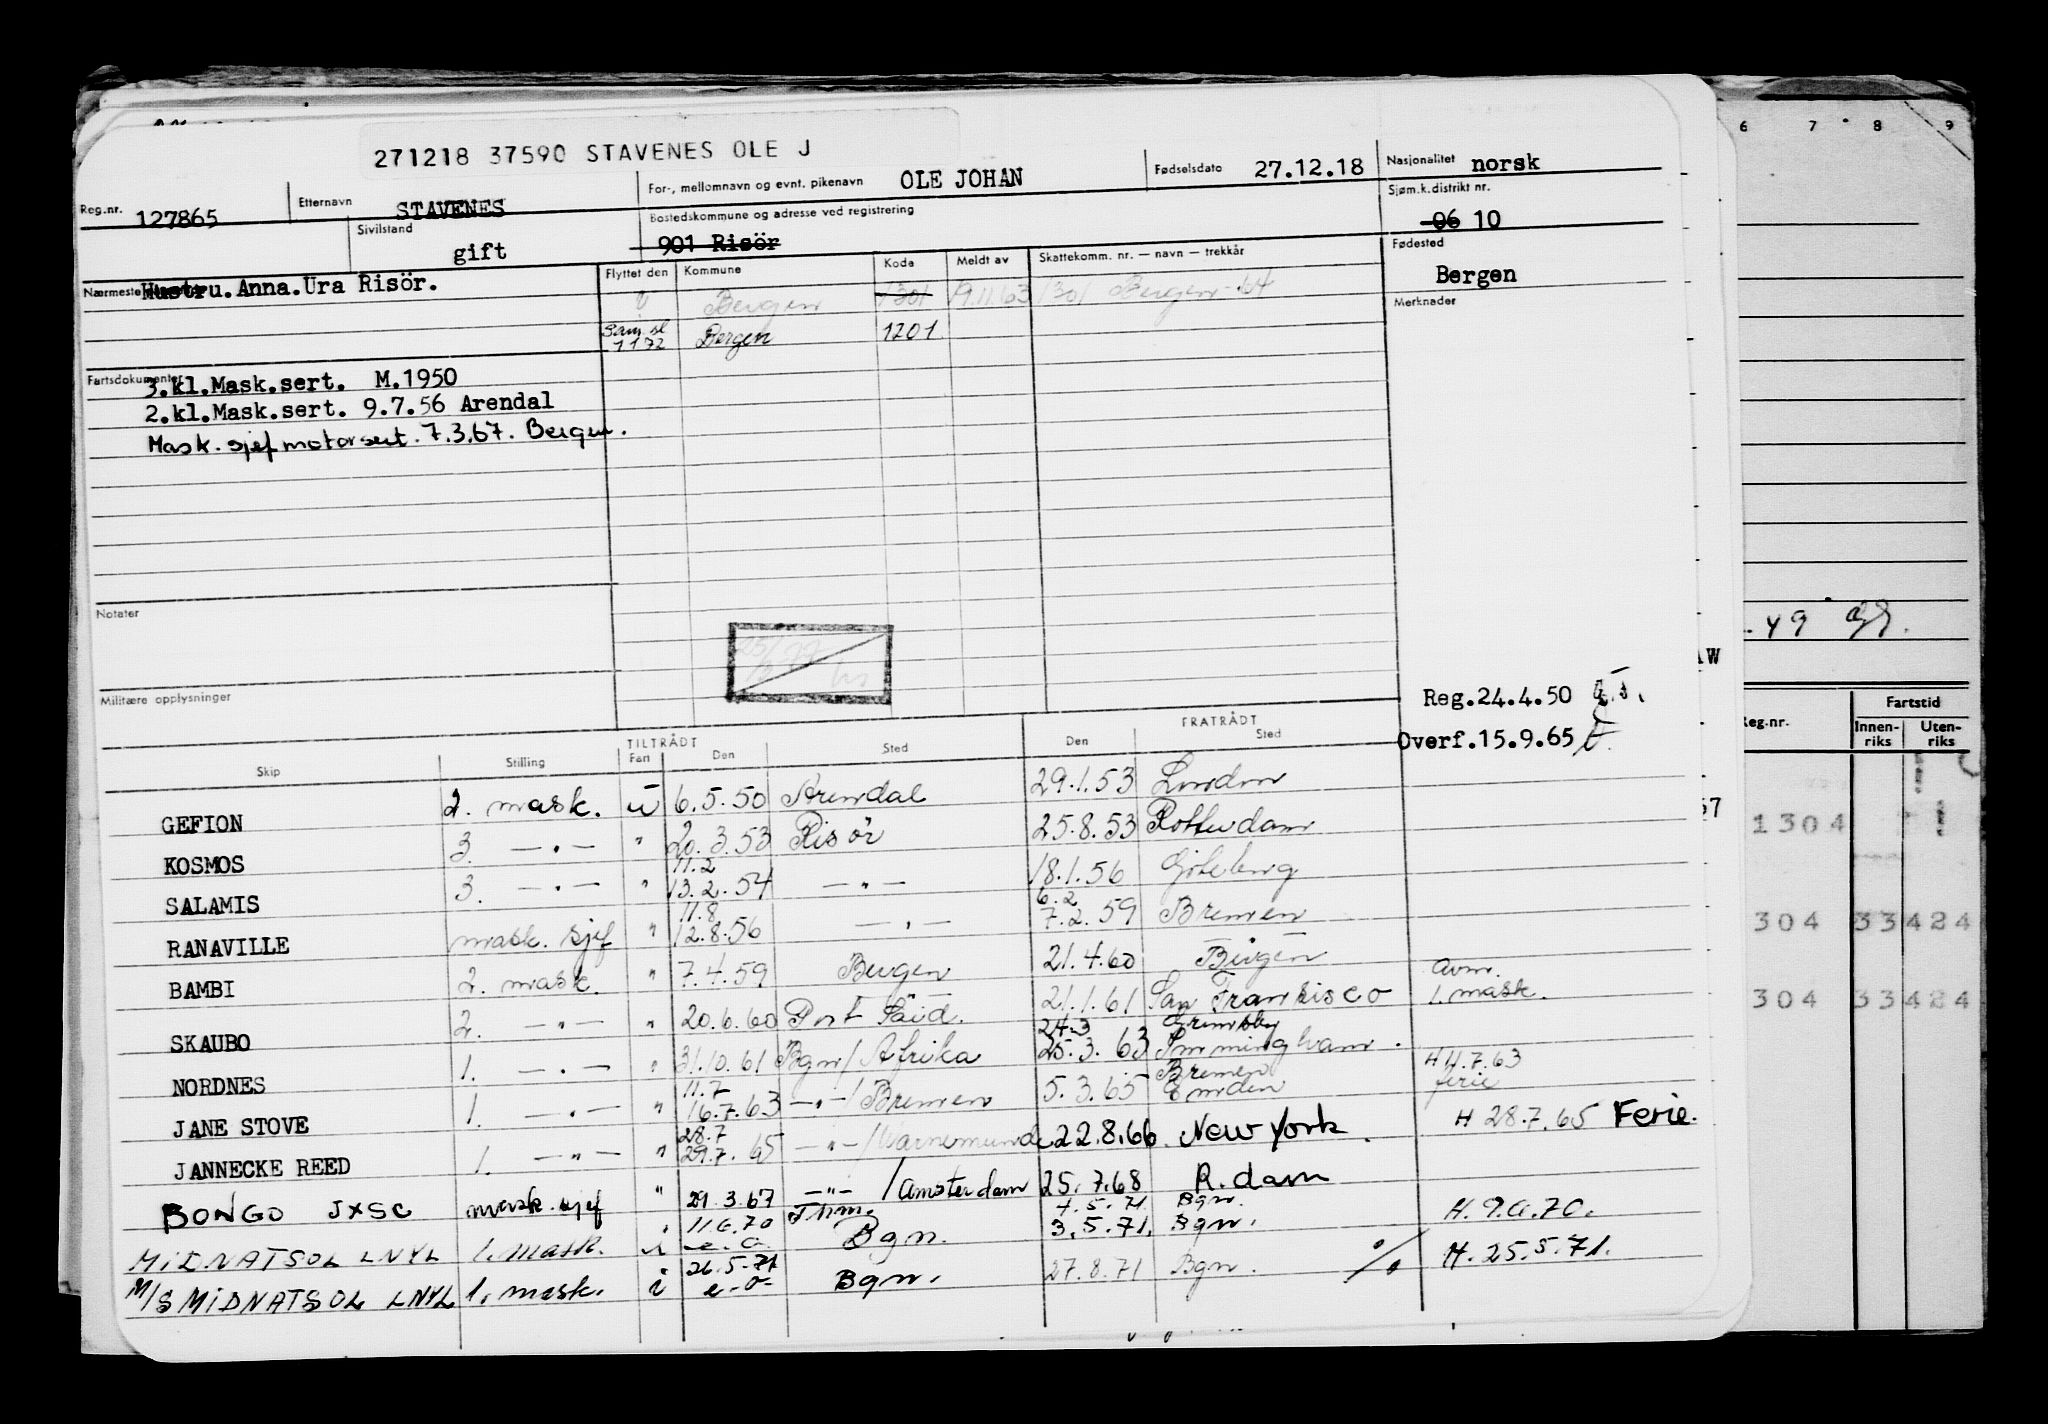 271218 37590 STAVENES OLE J
Reg.nr. 127865 Etternavn STAVENES For-, mellomnavn og evnt. pikenavn OLE JOHAN Fødselsdato 27.12.18 Nasjonalitet norsk
Sivilstand gift Bostedskommune og adresse ved registrering 901 Risör Sjøm.k.distrikt nr. 06 10
Nærmeste Hustru.Anna.Ura Risör. Flyttet den Kommune Kode Meldt av Skattekomm. nr. — navn — trekkår Fødested Bergen
Bergen 1301 19.11.63 1301 Bergen - 64 Merknader
Sam. sl 1172 Bergen 1201
Fartsdokumenter 3.kl.Mask.sert. M.1950
2.kl.Mask.sert. 9.7.56 Arendal
Mask. sjef motorsert. 7.3.67. Bergen.
Notater
Militære opplysninger
Reg.24.4.50
Overf.15.9.65
TILTRÅDT FRATRÅDT
Skip Stilling Fart Den Sted Den Sted
GEFION 2. mask. u 6.5.50 Arendal 29.1.53 London
KOSMOS 3. — " — " 20.3.53 Risör 25.8.53 Rotterdam
SALAMIS 3. — " — " 11.2 13.2.54 — " — 18.1.56 Göteborg
RANAVILLE mask. sjef " 11.8 12.8.56 — " — 6.2 7.2.59 Bremen
BAMBI 2. mask. " 7.4.59 Bergen 21.4.60 Bergen
SKAUBO 2. — " — " 20.6.60 Port Said. 21.1.61 San Fransisco Avm. 1. mask.
NORDNES 1. — " — " 31.10.61 Bgn / Afrika 24.3 25.3.63 Grimsby Immingham.
JANE STOVE 1. — " — " 11.7 16.7.63 — " — / Bremen 5.3.65 Bremen Emden H 11.7.63 ferie
JANNECKE REED 1. — " — " 28.7 29.7.65 — " — / Warnemunde 22.8.66. New York. H 28.7.65 Ferie.
BONGO JXSC mask. sjef " 29.3.67 — " — / Amsterdam 25.7.68 R.dam
MIDNATSOL LNYL 1. mask. i 11.6.70 Bgn. 4.5.71 Bgn. 3.5.71. Bgn. H.9.6.70.
M/S MIDNATSOL LNYL 1. mask. i 26.5.71 Bgn. 27.8.71 Bgn. H.25.5.71.
6 7 8 9
Reg.nr. Fartstid
Innen-riks Uten-riks
1304
304 33 424
304 33 424